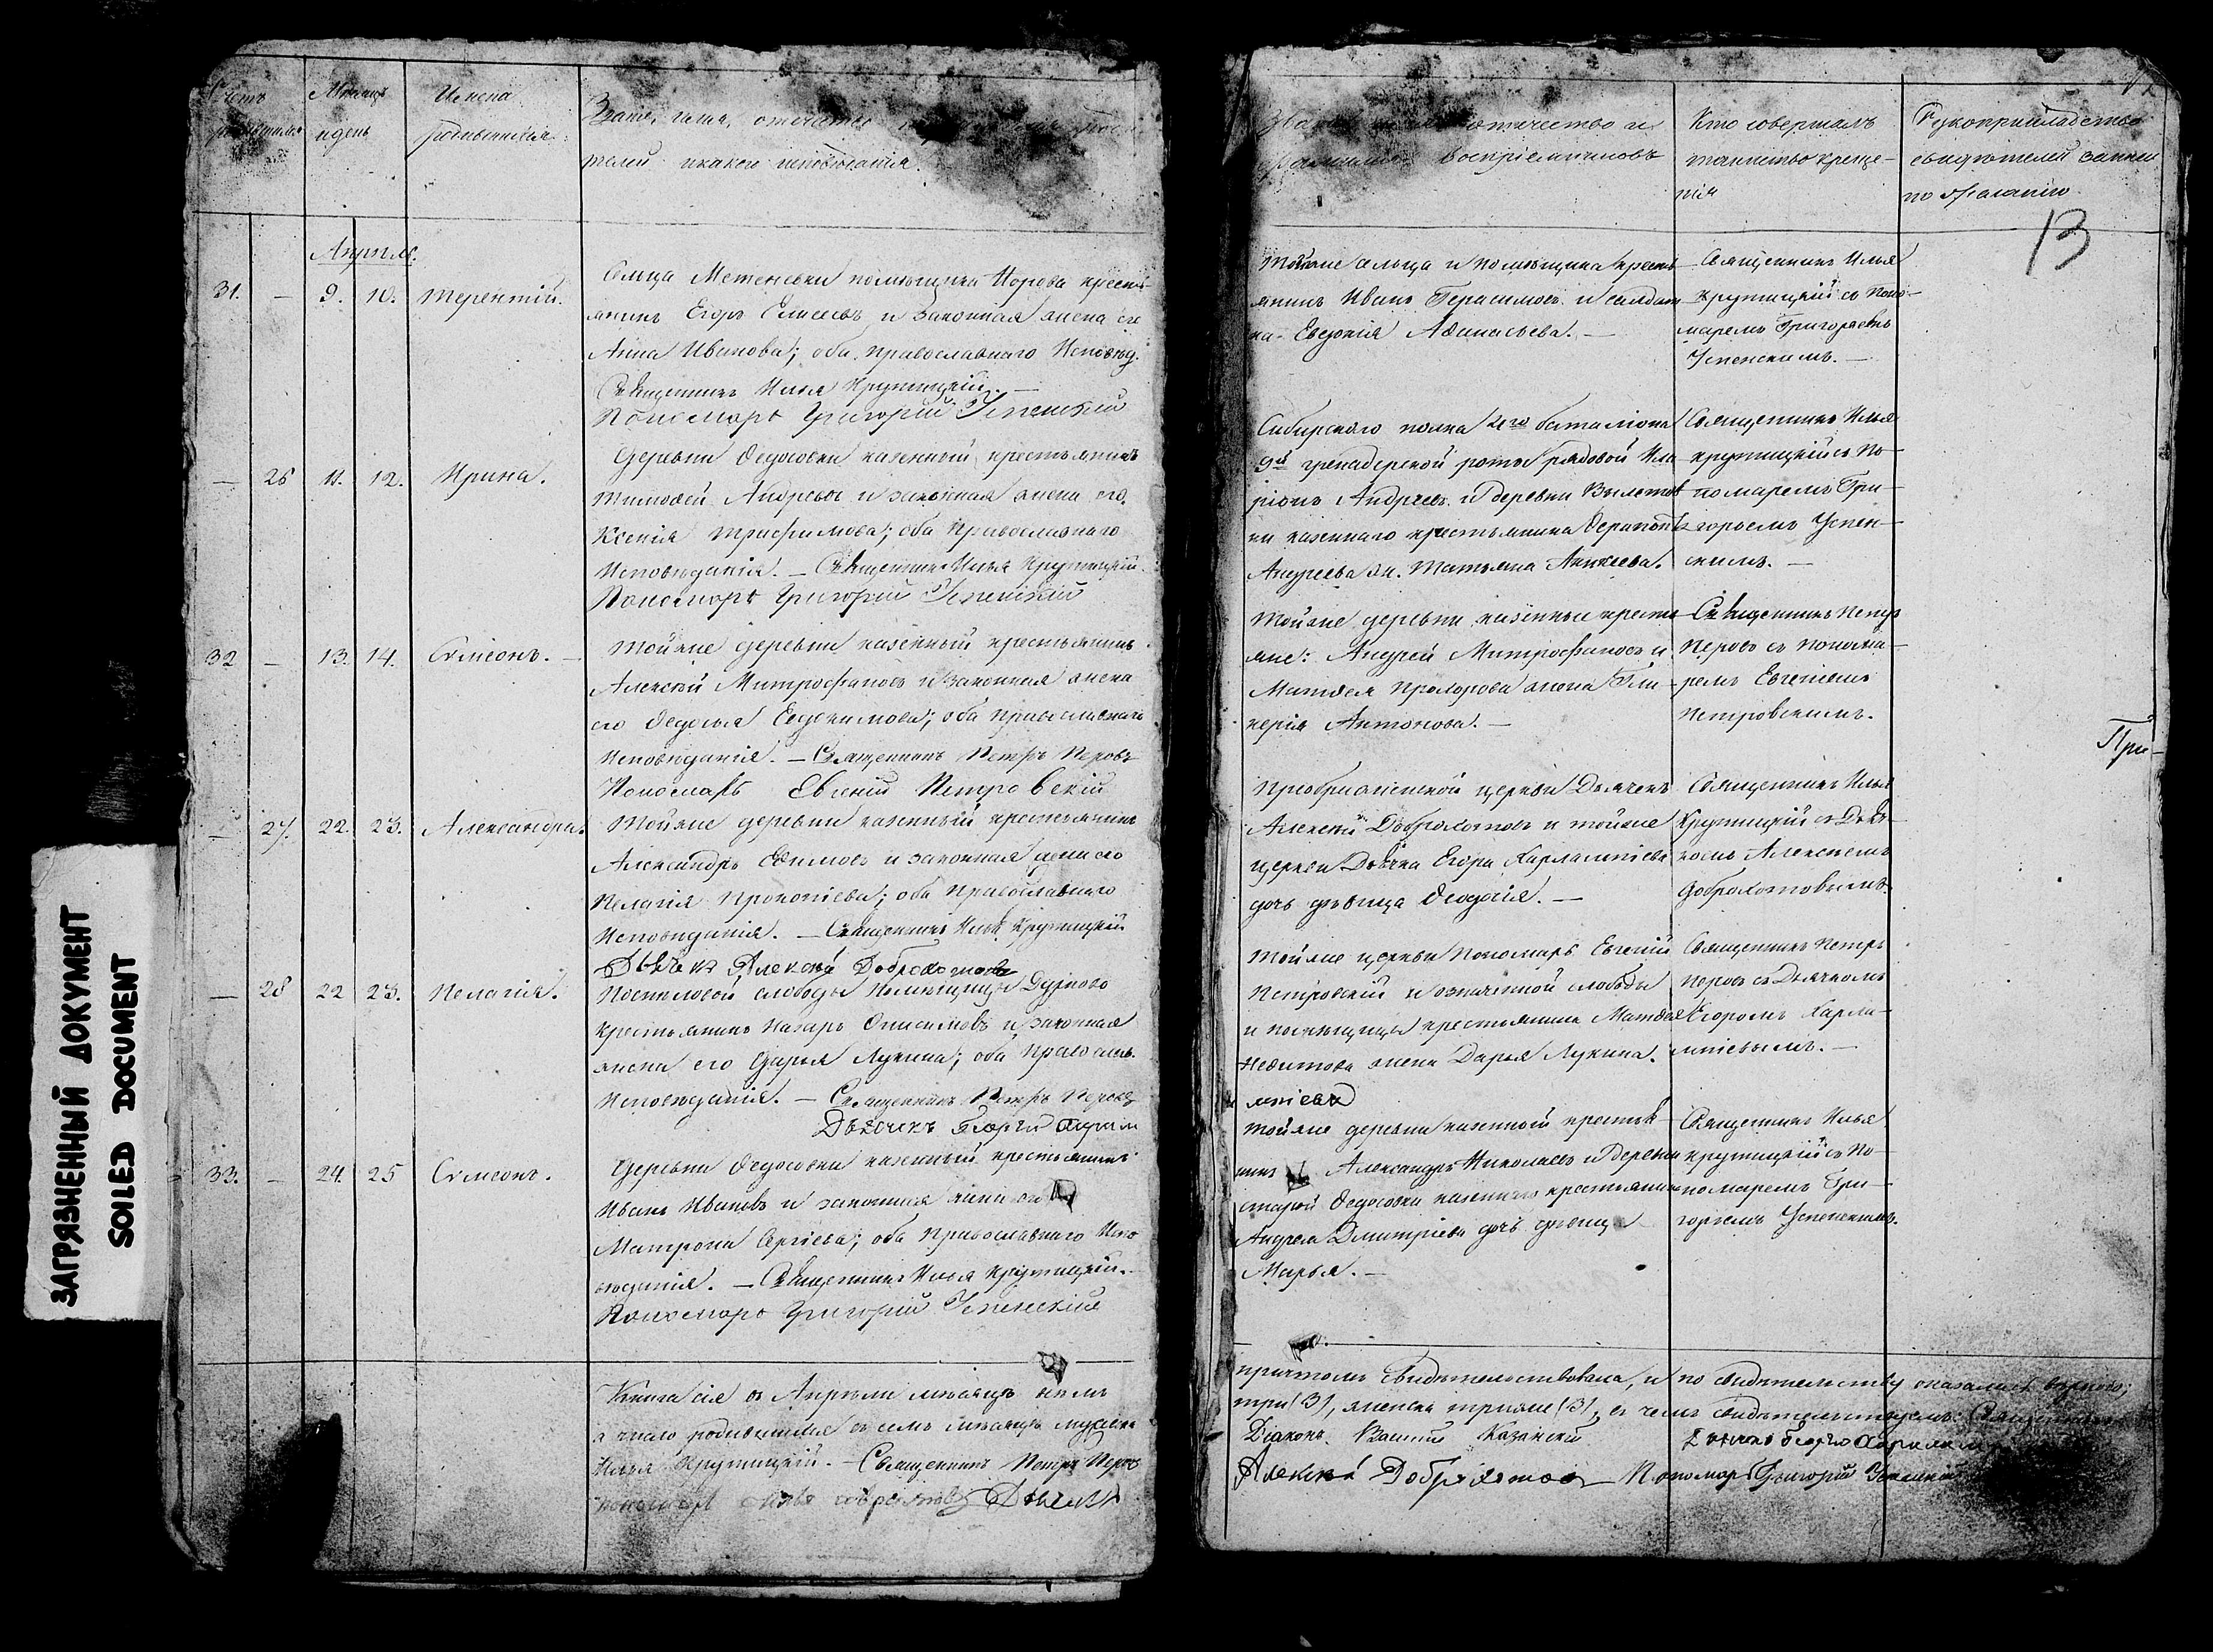 Счетъ родившихся
Мѣсяцъ и день
Имена родившихся.
Званіе, имя, отчество
телей и какого исповѣданія.
Апрѣль.
31. — 9. 10. Терентій.
Сельца Метеневки помѣщика Норова кресть-
янинъ Егоръ Елисеевъ и законная жена его
Анна Иванова; оба православнаго Исповѣд.
Священникъ Илья Крутицкій. —
Пономарь Григорій Успенскій
— 26 11. 12. Ирина.
Деревни Ѳедосовки казенный крестьянинъ
Тимоѳей Андреевъ и законная жена его
Ксенія Трифилмова; оба православнаго
Исповѣданія. — Священникъ Илья Крутицкій.
Пономарь Григорій Успенскій
32 — 13. 14. Сѵмеонъ. —
Тойже деревни казенный крестьянинъ
Алексѣй Митрофановъ и законная жена
его Ѳедосья Евдокимова; оба православнаго
Исповѣданія. — Священникъ Петръ Перовъ
Пономарь Евгеній Петровскій
— 27. 22. 23. Александра.
Тойже деревни казенный крестьянинъ
Александръ Ефимовъ и законная жена его
Пелагія Прокопіева; оба православнаго
Исповѣданія. — Священникъ Илья Крутицкій
Дьячекъ Алексѣй Доброхотовъ
— 28 22 23. Пелагія.
слободы помѣщицы
крестьянинъ Назаръ Онисимовъ и законная
жена его Дарья Лукина; оба православ.
Исповѣданія. — Священникъ Петръ Перовъ
Дьячекъ Георгій
33. — 24. 25 Сѵмеонъ.
Деревни Ѳедосовки казенный крестьянинъ
Иванъ Ивановъ и законная жена его
Матрона Сергіева; оба православнаго Испо
вѣданія. — Священникъ Илья Крутицкій.
Пономарь Григорій Успенскій
Книга сія въ Апрѣлѣ мѣсяцѣ нами
а число родившихся въ семъ мѣсяцѣ мужеска
Илья Крутицкій. — Священникъ Петръ Перовъ
Дьячекъ
отчество и
воспріемниковъ
Кто совершалъ
таинство креще-
нія
Рукоприкладство
свидѣтелей записи
по желанію.
13
Тогоже сельца и помѣщика кресть-
янинъ Иванъ Герасимовъ и солдат-
ка Евдокія Аѳанасьева. —
Священникъ Илья
Крутицкій съ поно-
маремъ Григорьемъ
Успенскимъ. —
Сибирскаго полка 2го баталіона
9й гренадерской роты рядовой Ила-
ріонъ Андреевъ и деревни
ки казеннаго крестьянина Ѳерапонта
Андреева ж. Татьяна Алексеева.
Священникъ Илья
Крутицкій съ По-
номаремъ Гри-
горьемъ Успен-
скимъ. —
Тойже деревни казенные крестья-
яне: Андрей Митрофановъ и
Матвея Прохорова жена Гли-
керія Антонова. —
Священникъ Петръ
Перовъ съ понома-
ремъ Евгеніемъ
Петровскимъ.
При-
Преображенской церкви Дьячекъ
Алексѣй Доброхотовъ и тойже
церкви Дьячка Егора Харлампіева
дочь дѣвица Ѳеодосія. —
Священникъ Илья
Крутицкій съ Дьяч-
комъ Алексѣемъ
Доброхотовымъ.
Тойже церкви пономарь Евгеній
Петровскій и означенной слободы
и помѣщицы крестьянина Матвея
жена Дарья Лукина.
Священникъ Петръ
Перовъ съ Дьячкомъ
Егоромъ Харла-
мпіевымъ. —
мпіевъ
Тойже деревни казенной крестья-
нинъ Александръ Николаевъ и деревни
старой Ѳедосовки казеннаго крестьянина
Андрея Дмитріева дочь дѣвица
Марья. —
Священникъ Илья
Крутицкій съ По-
номаремъ Гри-
горіемъ Успенскимъ.
причтомъ свидѣтельствована, и по свидѣтельству оказалась вѣрною;
три (3), женска трижe (3), въ чемъ свидѣтельствуемъ: Священникъ
Діаконъ Василій Казанскій Дьячекъ Георгій
Алексѣй Доброхотовъ Пономарь Григорій Успенскій
ЗАГРЯЗНЕННЫЙ ДОКУМЕНТ
SOILED DOCUMENT